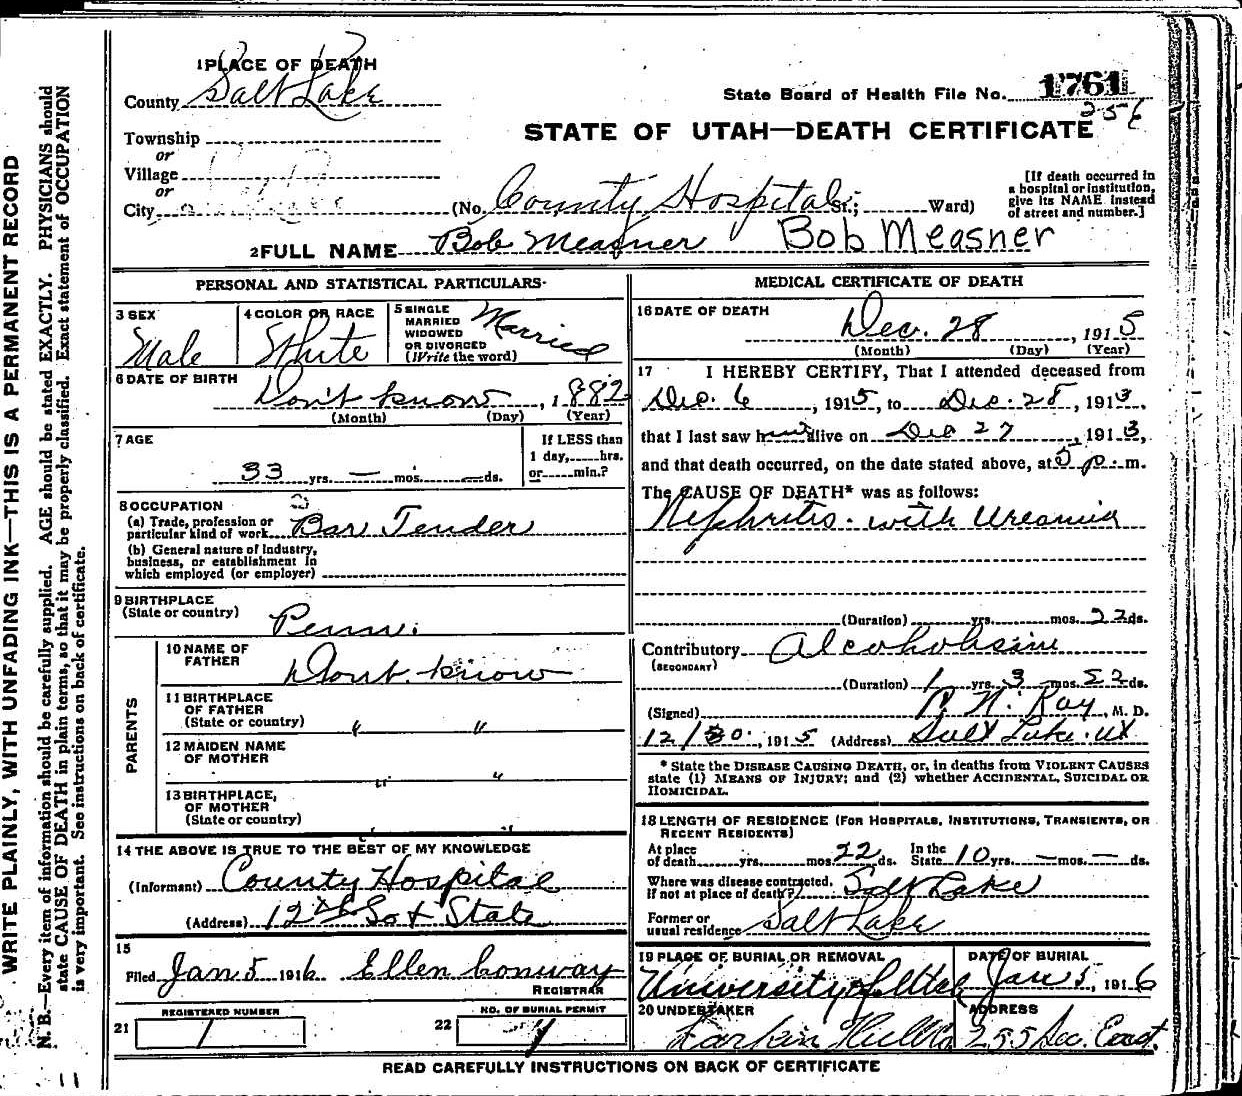 1 PLACE OF DEATH
County Salt Lake
State Board of Health File No. 1761
256
Township
STATE OF UTAH—DEATH CERTIFICATE
or
Village
or
City (No. County Hospital St.; Ward)
[If death occurred in a hospital or institution, give its NAME instead of street and number.]
2 FULL NAME Bob Measner Bob Measner
PERSONAL AND STATISTICAL PARTICULARS
3 SEX Male
4 COLOR OR RACE White
5 SINGLE MARRIED WIDOWED OR DIVORCED (Write the word) Married
6 DATE OF BIRTH Don't know, 1882
(Month) (Day) (Year)
7 AGE
33 yrs. — mos. — ds.
If LESS than 1 day, hrs. or min.?
8 OCCUPATION
(a) Trade, profession or particular kind of work Bar Tender
(b) General nature of industry, business, or establishment in which employed (or employer)
9 BIRTHPLACE
(State or country) Penn.
PARENTS
10 NAME OF FATHER Dont know
11 BIRTHPLACE OF FATHER (State or country) " "
12 MAIDEN NAME OF MOTHER " "
13 BIRTHPLACE, OF MOTHER (State or country) " "
14 THE ABOVE IS TRUE TO THE BEST OF MY KNOWLEDGE
(Informant) County Hospital
(Address) 12th So & State
15
Filed Jan 5 1916 Ellen Conway
REGISTRAR
21 REGISTERED NUMBER 1
22 NO. OF BURIAL PERMIT
MEDICAL CERTIFICATE OF DEATH
16 DATE OF DEATH
Dec. 28, 1915
(Month) (Day) (Year)
17 I HEREBY CERTIFY, That I attended deceased from
Dec. 6, 1915, to Dec. 28, 1913,
that I last saw him alive on Dec 27, 1913,
and that death occurred, on the date stated above, at 5 p. m.
The CAUSE OF DEATH* was as follows:
Nephritis. with Ureamia
(Duration) yrs. mos. 22 ds.
Contributory Alcoholism
(SECONDARY)
(Duration) 1 yrs. 3 mos. 22 ds.
(Signed) Ray, M. D.
12/30, 1915 (Address) Salt Lake. Ut
* State the DISEASE CAUSING DEATH, or, in deaths from VIOLENT CAUSES
state (1) MEANS OF INJURY; and (2) whether ACCIDENTAL, SUICIDAL OR
HOMICIDAL.
18 LENGTH OF RESIDENCE (FOR HOSPITALS, INSTITUTIONS, TRANSIENTS, OR
RECENT RESIDENTS)
At place of death yrs. mos. 22 ds. In the State 10 yrs. — mos. — ds.
Where was disease contracted, if not at place of death? Salt Lake
Former or usual residence Salt Lake
19 PLACE OF BURIAL OR REMOVAL University of Utah
DATE OF BURIAL Jan 5, 1916
20 UNDERTAKER Larkin Hull
ADDRESS 255 So. East.
READ CAREFULLY INSTRUCTIONS ON BACK OF CERTIFICATE
11
WRITE PLAINLY, WITH UNFADING INK—THIS IS A PERMANENT RECORD
N. B.—Every item of information should be carefully supplied. AGE should be stated EXACTLY. PHYSICIANS should
state CAUSE OF DEATH in plain terms, so that it may be properly classified. Exact statement of OCCUPATION
is very important. See instructions on back of certificate.